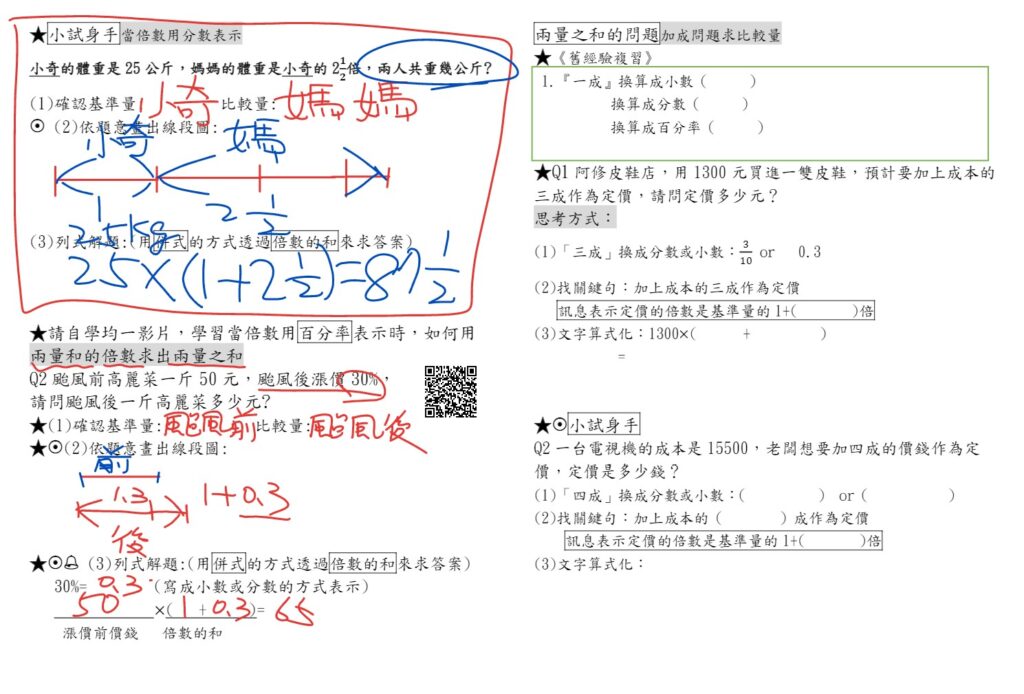 ★小試身手當倍數用分數表示
小奇的體重是 25 公斤，媽媽的體重是小奇的 2½倍，兩人共重幾公斤？
(1)確認基準量 小奇 比較量: 媽媽
⊙ (2)依題意畫出線段圖:
小奇 媽
1 2½
25kg
(3)列式解題:(用併式的方式透過倍數的和來求答案)
25×(1+2½)=87½
★請自學均一影片，學習當倍數用百分率表示時，如何用
兩量和的倍數求出兩量之和
Q2 颱風前高麗菜一斤 50 元，颱風後漲價 30%，
請問颱風後一斤高麗菜多少元?
★(1)確認基準量:颱風前 比較量:颱風後
★⊙(2)依題意畫出線段圖:
前
1.3 1+0.3
後
★⊙🔔 (3)列式解題:(用併式的方式透過倍數的和來求答案)
30%= 0.3 (寫成小數或分數的方式表示)
50 ×( 1 + 0.3)= 65
漲價前價錢 倍數的和
兩量之和的問題加成問題求比較量
★《舊經驗複習》
1.『一成』換算成小數 ( )
換算成分數 ( )
換算成百分率 ( )
★Q1 阿修皮鞋店，用 1300 元買進一雙皮鞋，預計要加上成本的
三成作為定價，請問定價多少元？
思考方式：
(1)「三成」換成分數或小數：3/10 or 0.3
(2)找關鍵句：加上成本的三成作為定價
訊息表示定價的倍數是基準量的 1+( )倍
(3)文字算式化：1300×( + )
=
★⊙小試身手
Q2 一台電視機的成本是 15500，老闆想要加四成的價錢作為定
價，定價是多少錢？
(1)「四成」換成分數或小數：( ) or ( )
(2)找關鍵句：加上成本的 ( ) 成作為定價
訊息表示定價的倍數是基準量的 1+( )倍
(3)文字算式化：